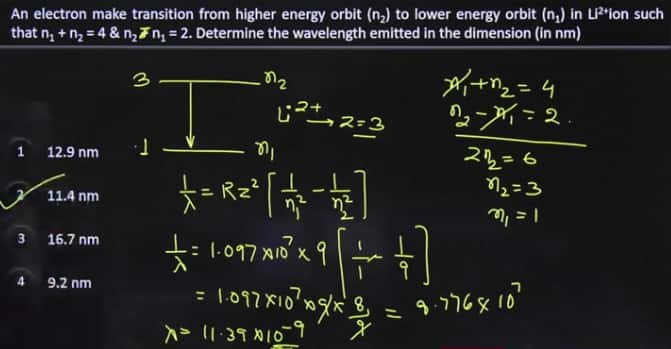 An electron make transition from higher energy orbit (n₂) to lower energy orbit (n₁) in Li²⁺ion such
that n₁ + n₂ = 4 & n₂ - n₁ = 2. Determine the wavelength emitted in the dimension (in nm)
3 n₂
Li²⁺ → z=3
1 n₁
n₁+n₂ = 4
n₂-n₁ = 2.
2n₂ = 6
n₂=3
n₁ = 1
1 12.9 nm
2 11.4 nm
3 16.7 nm
4 9.2 nm
1/λ = Rz² [1/n₁² - 1/n₂²]
1/λ = 1.097 x10⁷ x 9 [1/1 - 1/9]
= 1.097x10⁷ x 9 x 8/9 = 8.776 x 10⁷
λ = 11.39 x10⁻⁹